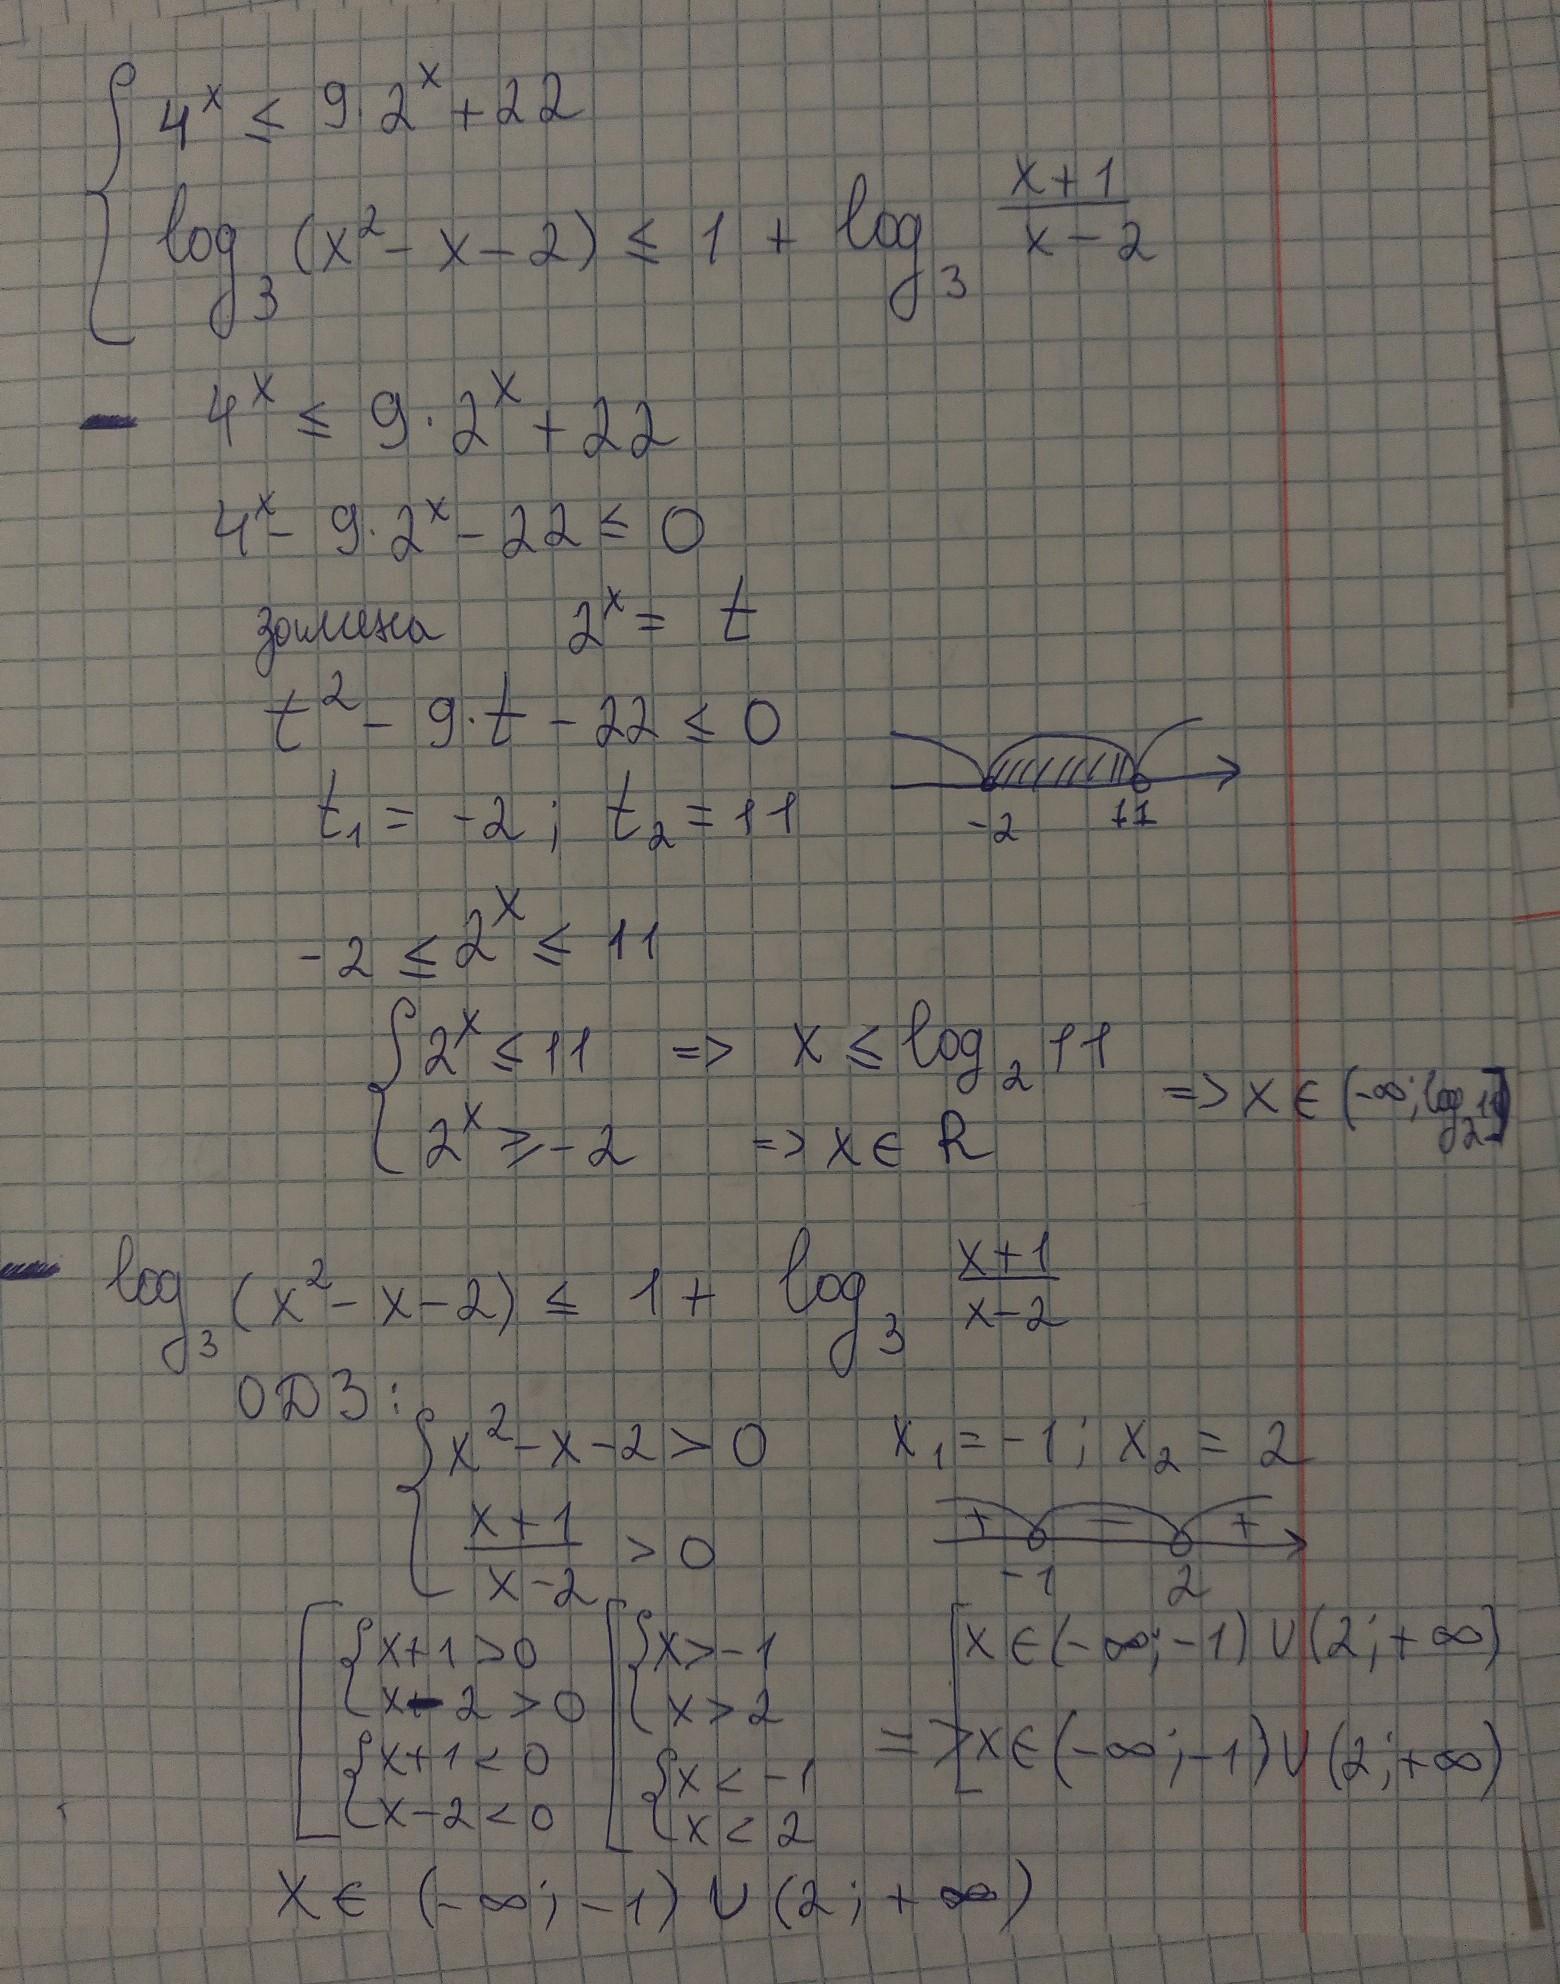 { 4^x ≤ 9·2^x + 22
log_3 (x^2 - x - 2) ≤ 1 + log_3 (x+1)/(x-2)
- 4^x ≤ 9·2^x + 22
4^x - 9·2^x - 22 ≤ 0
замена 2^x = t
t^2 - 9·t - 22 ≤ 0
t_1 = -2; t_2 = 11
-2 11
-2 ≤ 2^x ≤ 11
{ 2^x ≤ 11 => x ≤ log_2 11
2^x ≥ -2 => x ∈ R
=> x ∈ (-∞; log_2 11]
- log_3 (x^2 - x - 2) ≤ 1 + log_3 (x+1)/(x-2)
ОДЗ:
{ x^2 - x - 2 > 0 x_1 = -1; x_2 = 2
(x+1)/(x-2) > 0
+ - +
-1 2
[ { x+1 > 0 [ { x > -1 [ x ∈ (-∞; -1) ∪ (2; +∞)
x - 2 > 0 x > 2
{ x+1 < 0 { x < -1 => x ∈ (-∞; -1) ∪ (2; +∞)
x - 2 < 0 x < 2
x ∈ (-∞; -1) ∪ (2; +∞)